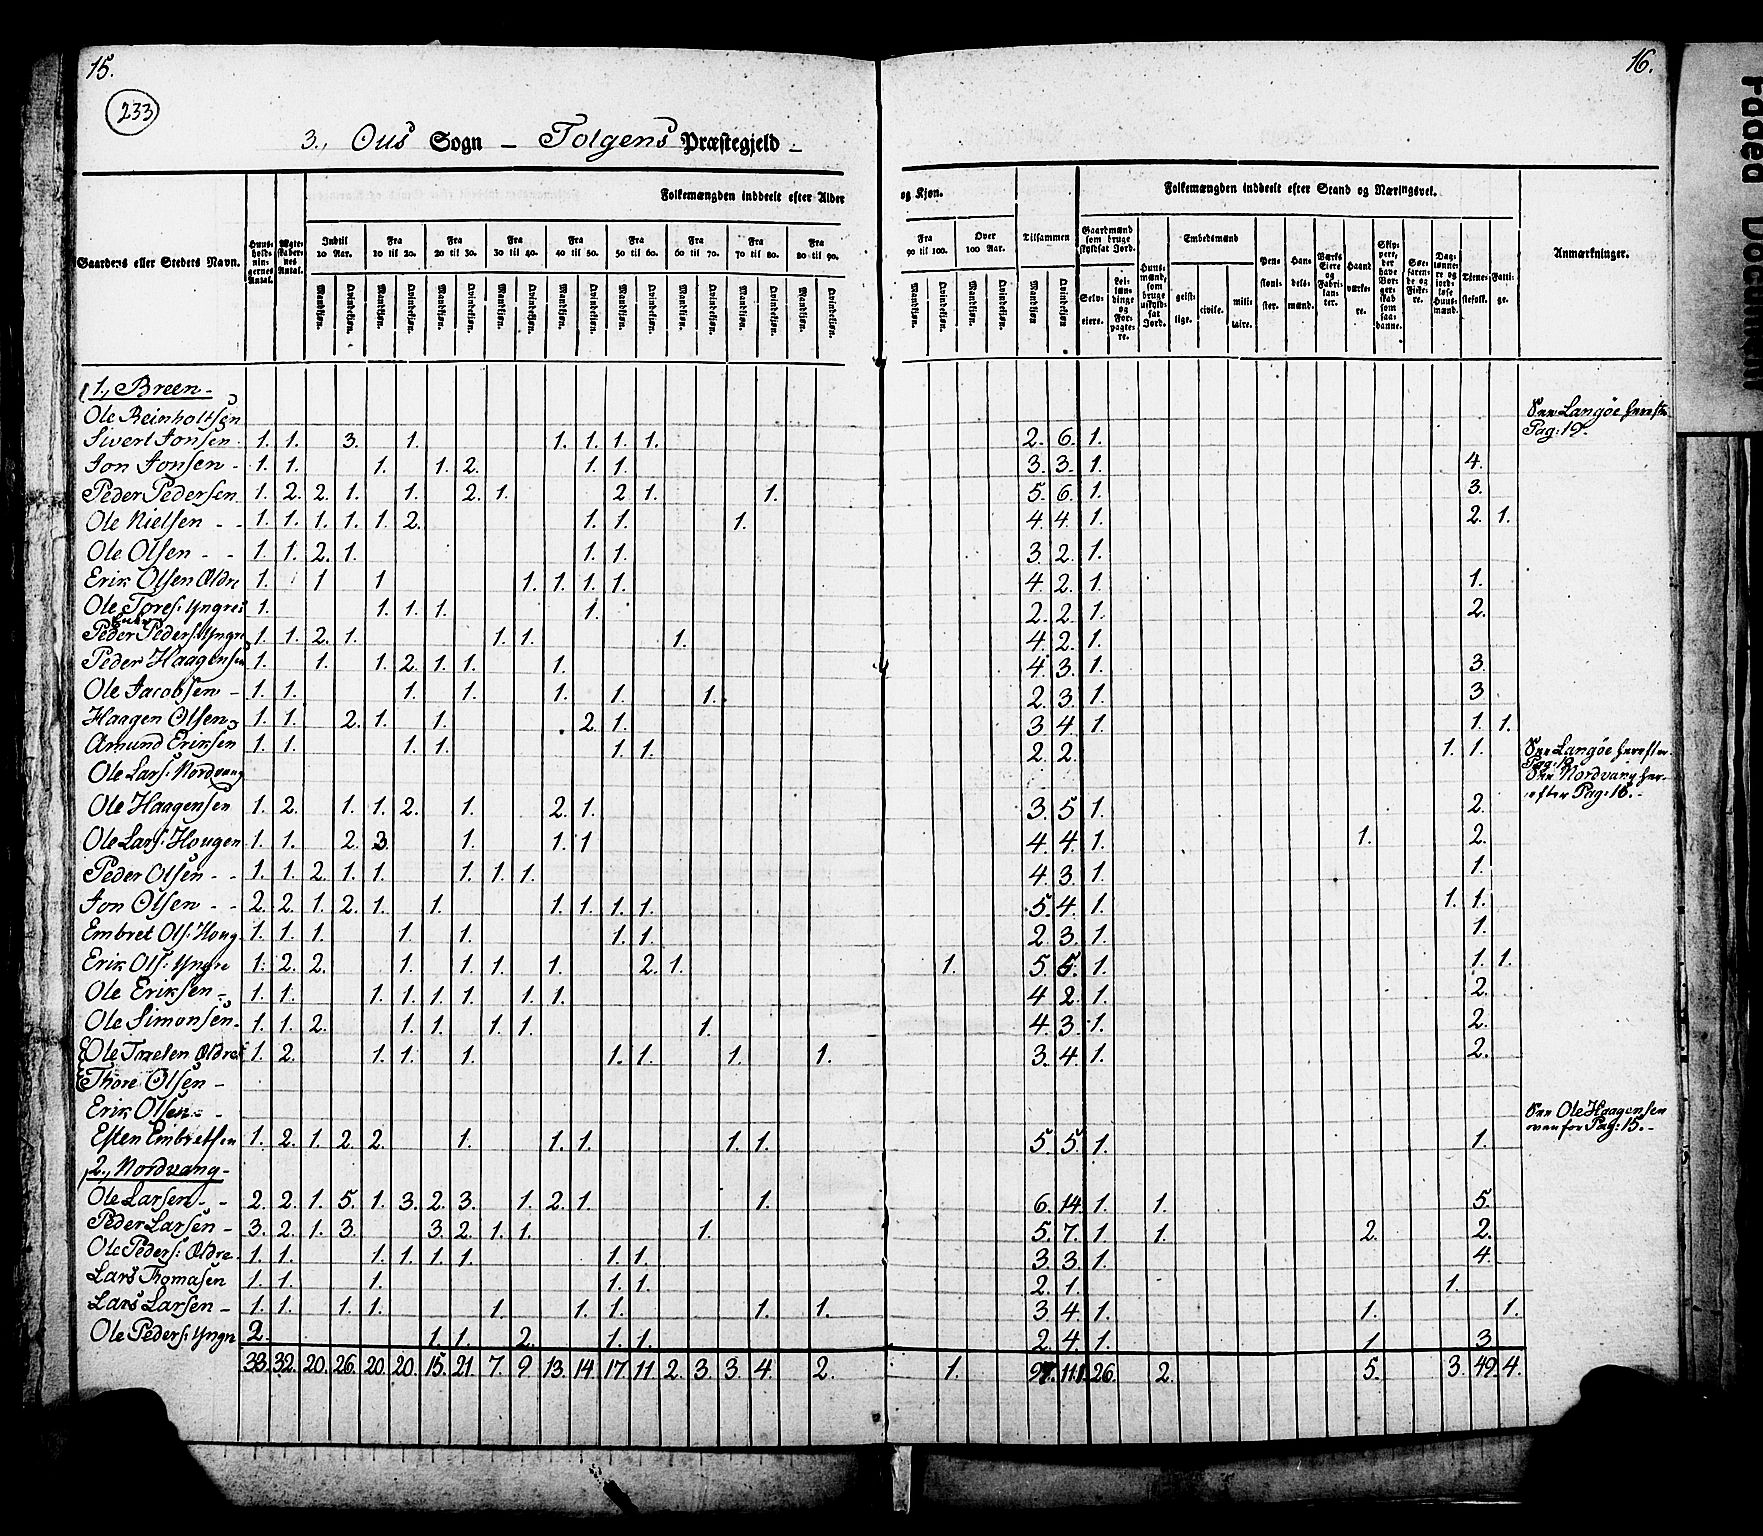 15.
16.
233
3., Ous Sogn – Tolgens Præstegjeld –
Folkemængden inddeelt efter Alder og Kjøn.
Folkemængden inddeelt efter Stand og Næringsvei.
Gaardens eller Stedets Navn.
Huusholdningernes Antal.
Ægteskabernes Antal.
Indtil 10 Aar.
Fra 10 til 20.
Fra 20 til 30.
Fra 30 til 40.
Fra 40 til 50.
Fra 50 til 60.
Fra 60 til 70.
Fra 70 til 80.
Fra 80 til 90.
Fra 90 til 100.
Over 100 Aar.
Tilsammen
Mandkjøn. Qvindekjøn.
Gaardmænd som bruge skyldsat Jord.
Selveiere.
Leilændinge og Forpagtere.
Huusmænd, som bruge uskyldsat Jord.
Embedsmænd
geistlige.
civile.
militaire.
Pensionister.
Handelsmænd.
Værks Eiere og Fabrikanter.
Haandværkere.
Skippere, der have Borgerskab som saadanne.
Søefarende og Fiskere.
Daglønnere og jordløse Huusmænd.
Tjenestefolk.
Fattige.
Anmærkninger.
1., Breen –
Ole Reinholtsen See Langøe herefter Pag: 19.
Sivert Jonsen 1. 1. 3. 1. 1. 1. 1. 1. 2. 6. 1.
Jon Jonsen – 1. 1. 1. 1. 2. 1. 1. 3. 3. 1. 4.
Peder Pedersen 1. 2. 2. 1. 1. 2. 1. 2 1. 1. 5. 6. 1. 3.
Ole Nielsen - - 1. 1. 1. 1. 1. 2. 1. 1. 1. 4. 4. 1. 2. 1.
Ole Olsen - - 1. 1. 2. 1. 1. 1. 3. 2. 1.
Erik Olsen Ældre 1. 1 1. 1. 1. 1. 1. 4. 2. 1. 1.
Ole Tores: Yngres 1. 1. 1. 1. 1. 2. 2. 1. 2.
Peder Peders: Yngre 1. 1. 2. 1. 1. 1. 1. 4. 2. 1.
Peder Haagensen 1. 1. 1. 2. 1. 1. 1. 4. 3. 1. 3.
Ole Jacobsen – 1. 1. 1. 1. 1. 1. 1. 2. 3. 1. 3
Haagen Olsen 1. 1. 2. 1. 1. 2. 1. 3 4. 1. 1. 1.
Amund Eriksen 1. 1. 1. 1. 1. 1. 2. 2. 1. 1. See Langøe herefter Pag: 19
Ole Lars: Nordvang See Nordvang herefter Pag: 16. –
Ole Haagensen 1. 2. 1. 1. 2. 1. 2. 1. 3. 5. 1. 2.
Ole Lars: Hougen 1. 1. 2. 3. 1. 1. 1 4. 4. 1. 1. 2.
Peder Olsen - - 1. 1. 2. 1. 1. 1. 1. 1. 4. 3. 1. 1.
Jon Olsen - - 2. 2. 1. 2. 1. 1. 1. 1. 1. 1. 5. 4. 1. 1. 1.
Embret Ols: Houg 1. 1. 1. 1. 1. 1. 1. 2. 3. 1. 1.
Erik Ols: Yngre 1. 2. 2. 1. 1. 1. 1. 2. 1. 1. 5. 5. 1. 1. 1.
Ole Eriksen - 1. 1. 1. 1. 1. 1. 1. 1. 4. 2. 1. 2.
Ole Simonsen - 1. 1. 2. 1. 1. 1. 1. 1. 4. 3. 1. 2.
Ole Ældre 1. 2. 1. 1. 1. 1. 1. 1. 1. 3. 4. 1. 2.
Thore Olsen –
Erik Olsen - - See Ole Haagensen ovenfor Pag: 15. –
Esten Embretsen 1. 2. 1. 2. 2. 1. 1. 1. 1. 1. 5. 5. 1. 1.
2., Nordvang –
Ole Larsen - - 2. 2. 1. 5. 1. 3. 2. 3. 1. 2. 1. 1. 6. 14. 1. 1. 5.
Peder Larsen – 3. 2. 1. 3. 3. 2. 1. 1. 1. 5. 7. 1. 1. 2. 2.
Ole Peders: Ældre 1. 1. 1. 1. 1. 1. 1. 1. 3. 3. 1. 4.
Lars Thomasen 1. 1. 1. 1. 1. 2. 1. 1.
Lars Larsen – 1. 1. 1. 1. 1. 1. 1. 1. 1. 3 4. 1. 1. 1.
Ole Peders: Yngre 2. 1. 1. 2. 1. 1. 2. 4. 1. 1 3
33. 32. 20. 26. 20. 20. 15. 21. 7. 9. 13. 14. 17. 11. 2. 3. 3. 4. 2. 1. 97. 111. 26. 2. 5. 3. 49. 4.